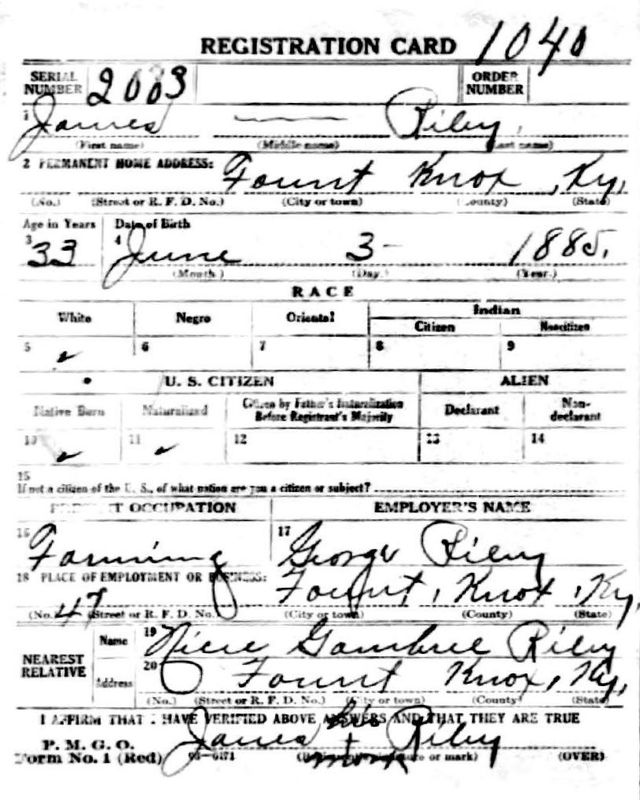 REGISTRATION CARD 1040
SERIAL NUMBER 2003 ORDER NUMBER
1 James — Riley,
(First name) (Middle name) (Last name)
2 PERMANENT HOME ADDRESS: Fount Knox, Ky,
(No.) (Street or R. F. D. No.) (City or town) (County) (State)
Age in Years Date of Birth
3 33 4 June 3 - 1885.
(Month.) (Day.) (Year.)
RACE
White Negro Oriental Indian
Citizen Noncitizen
5 ✓ 6 7 8 9
U. S. CITIZEN ALIEN
Native Born Naturalized Citizen by Father's Naturalization Before Registrant's Majority Declarant Non-declarant
10 ✓ 11 ✓ 12 13 14
15
If not a citizen of the U. S., of what nation are you a citizen or subject?
PRESENT OCCUPATION EMPLOYER'S NAME
16 Farming 17 George Riley
18 PLACE OF EMPLOYMENT OR BUSINESS: Fount, Knox, Ky,
(No.) 47 (Street or R. F. D. No.) (City or town) (County) (State)
NEAREST RELATIVE Name 19 Riley
Address 20 Fount Knox, Ky,
(No.) (Street or R. F. D. No.) (City or town) (County) (State)
I AFFIRM THAT I HAVE VERIFIED ABOVE ANSWERS AND THAT THEY ARE TRUE
P. M. G. O.
Form No. 1 (Red) James his + mark Riley
(Registrant's signature or mark) (OVER)